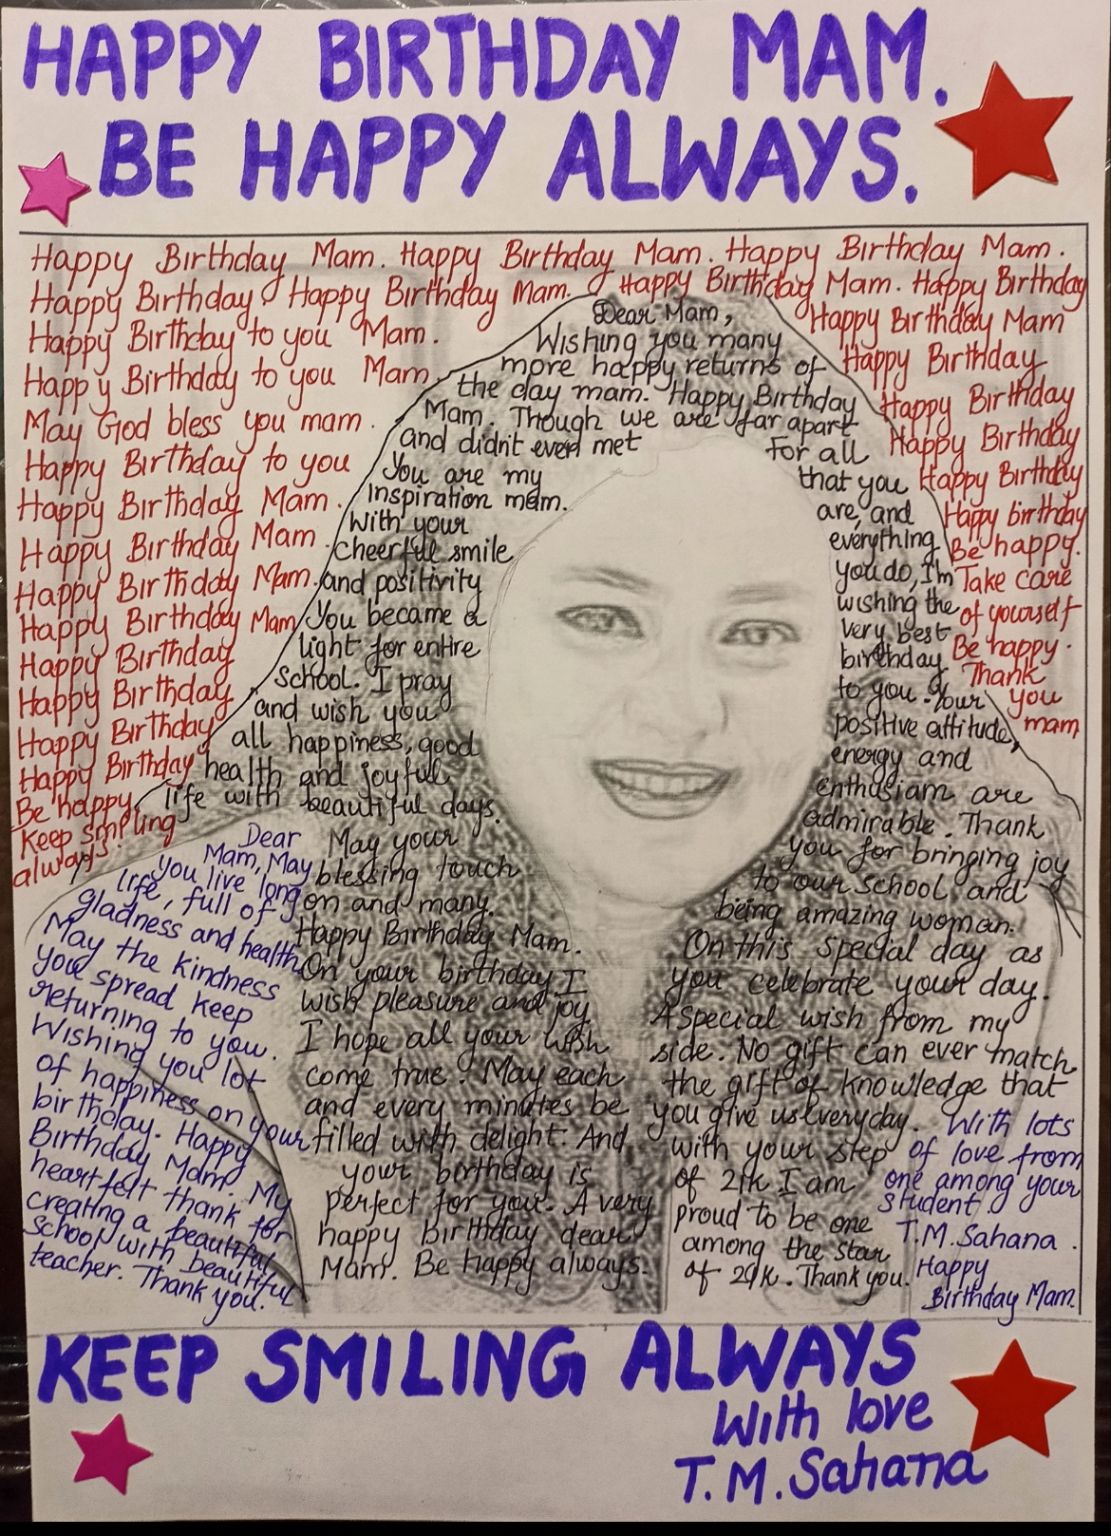 HAPPY BIRTHDAY MAM.
BE HAPPY ALWAYS.
Happy Birthday Mam. Happy Birthday Mam. Happy Birthday Mam.
Happy Birthday Happy Birthday Mam. Happy Birthday Mam. Happy Birthday
Happy Birthday to you Mam.
Happy Birthday to you Mam.
May God bless you mam.
Happy Birthday to you
Happy Birthday Mam.
Happy Birthday Mam.
Happy Birthday Mam.
Happy Birthday Mam
Happy Birthday
Happy Birthday
Happy Birthday
Happy Birthday
Be happy,
Keep smiling
always.
Dear Mam,
Wishing you many
more happy returns of
the day mam. Happy Birthday
Mam. Though we are far apart
and didn't even met
You are my
Inspiration mam.
With your
cheerful smile
and positivity
You became a
light for entire
School. I pray
and wish you
all happiness, good
health and joyful
life with beautiful days.
May your
blessing touch
on and many.
Happy Birthday Mam.
On your birthday I
wish pleasure and joy
I hope all your wish
come true. May each
and every minutes be
filled with delight. And
your birthday is
perfect for you. A very
happy birthday dear
Mam. Be happy always.
For all
that you
are, and
everything
you do, I'm
wishing the
very best
birthday
to you. Your
positive attitude,
energy and
enthusiam are
admirable. Thank
you for bringing joy
to our school and
being amazing woman.
On this special day as
you celebrate your day.
A special wish from my
side. No gift can ever match
the gift of knowledge that
you give us everyday.
with your step
of 21k I am
proud to be one
among the star
of 29k. Thank you.
Happy Birthday Mam
Happy Birthday
Happy Birthday
Happy Birthday
Happy Birthday
Happy birthday
Be happy.
Take care
of yourself
Be happy.
Thank
you
mam
Dear
Mam, May
you live long
life, full of
gladness and health
May the kindness
you spread keep
returning to you.
Wishing you lot
of happiness on your
birthday. Happy
Birthday Mam. My
heartfelt thank for
creating a beautiful
school with beautiful
teacher. Thank you.
With lots
of love from
one among your
student.
T.M.Sahana.
Happy
Birthday Mam.
KEEP SMILING ALWAYS
With love
T.M.Sahana